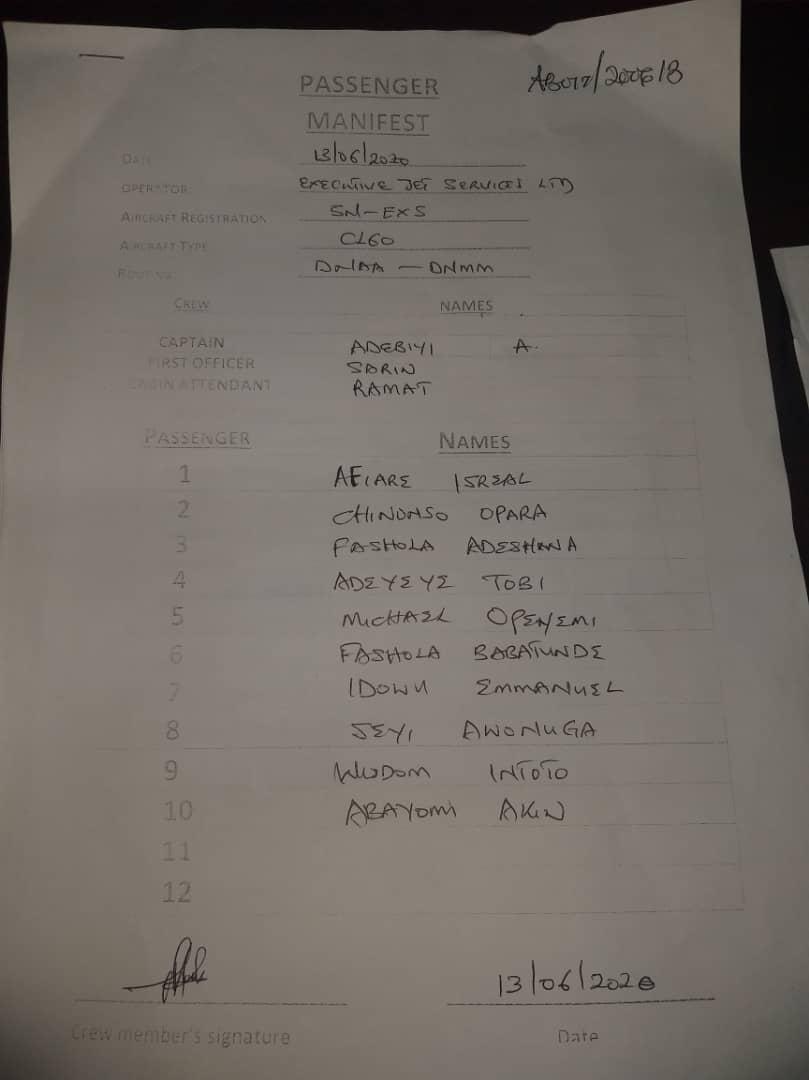 PASSENGER
MANIFEST
DATE 13/06/2020
OPERATOR EXECUTIVE JET SERVICES LTD
AIRCRAFT REGISTRATION 5N-EXS
AIRCRAFT TYPE CL60
ROUTING DNAA — DNMM
CREW NAMES
CAPTAIN ADEBIYI A.
FIRST OFFICER SORIN
CABIN ATTENDANT RAMAT
PASSENGER NAMES
1 AFIARE ISREAL
2 CHINONSO OPARA
3 FASHOLA ADESHINA
4 ADEYEYE TOBI
5 MICHAEL OPEYEMI
6 FASHOLA BABATUNDE
7 IDOWU EMMANUEL
8 SEYI AWONUGA
9 WISDOM INTOTO
10 ABAYOMI AKIN
11
12
13/06/2020
Crew member's signature Date